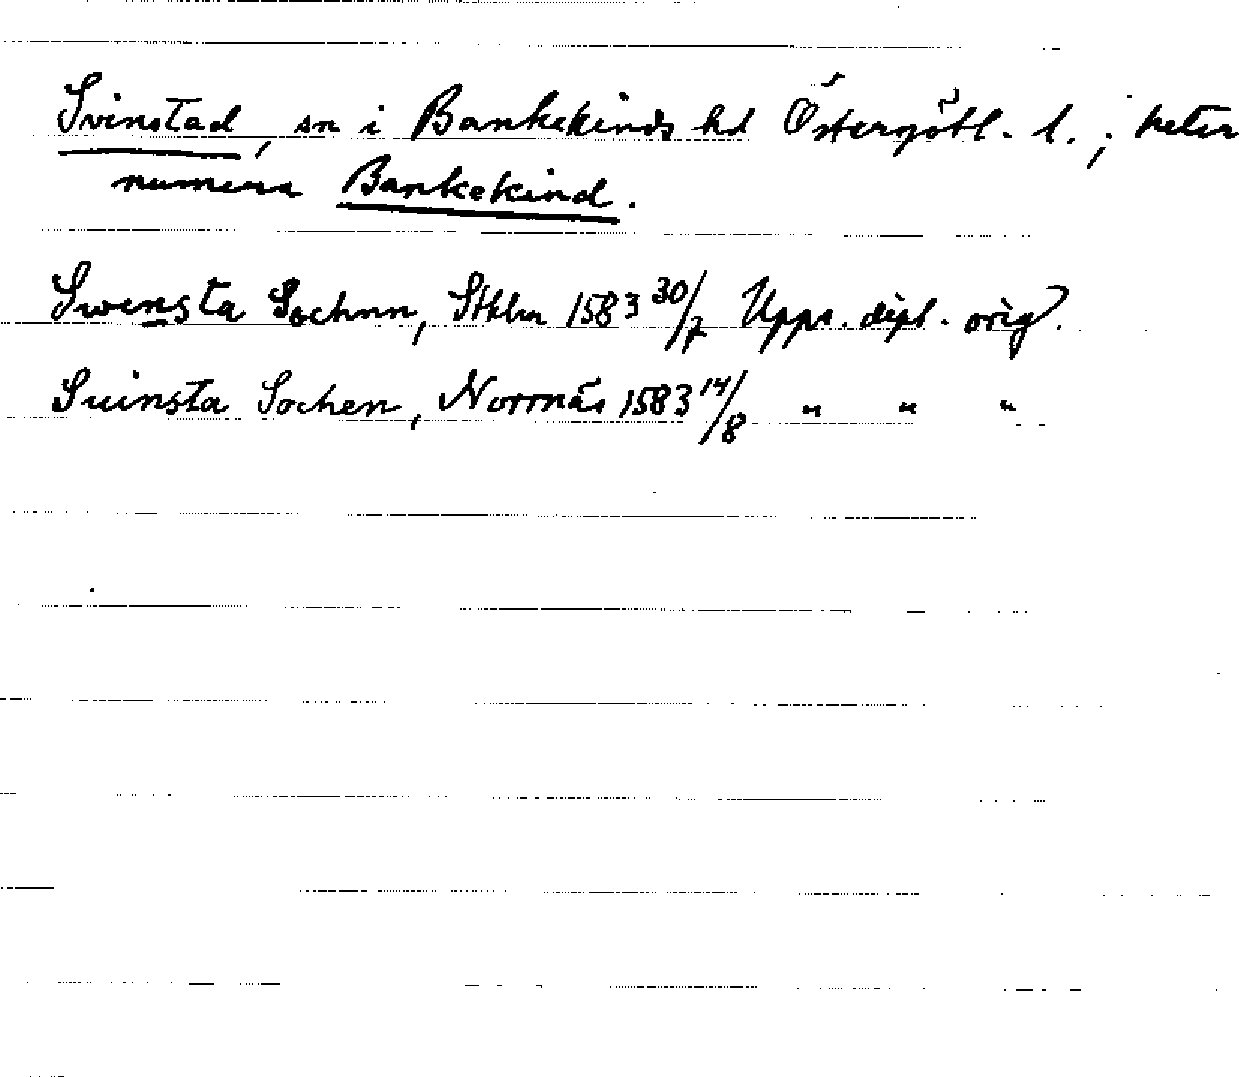 Svinstad, sn i Bankekinds hd Östergötl. l.; heter
numera Bankekind.
Swensta Sochnn, Sthlm 1583 30/7 Upps. dipl. orig.
Suinsta Sochen, Norrnäs 1583 14/8 " " "